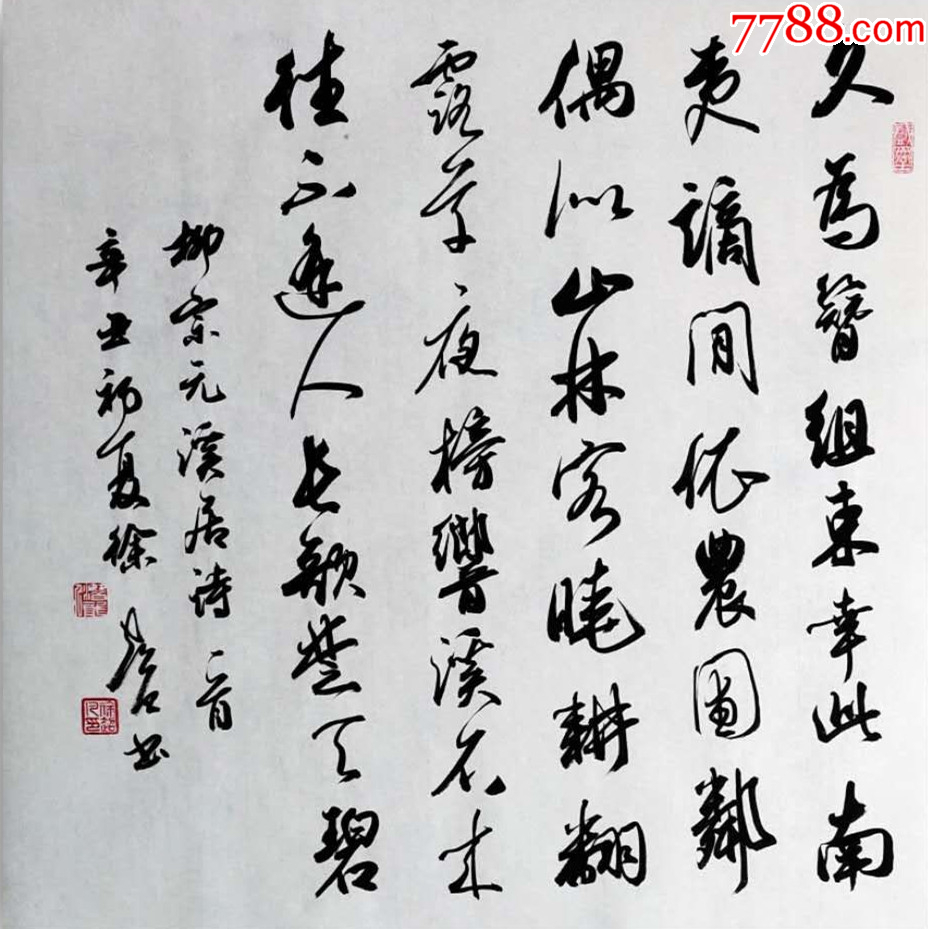 7788.com
久為簪組束幸此南
夷謫閒依農圃鄰
偶似山林客曉耕翻
露草夜榜響溪石来
往不逢人長歌楚天碧
柳宗元溪居诗一首
辛丑初夏徐书